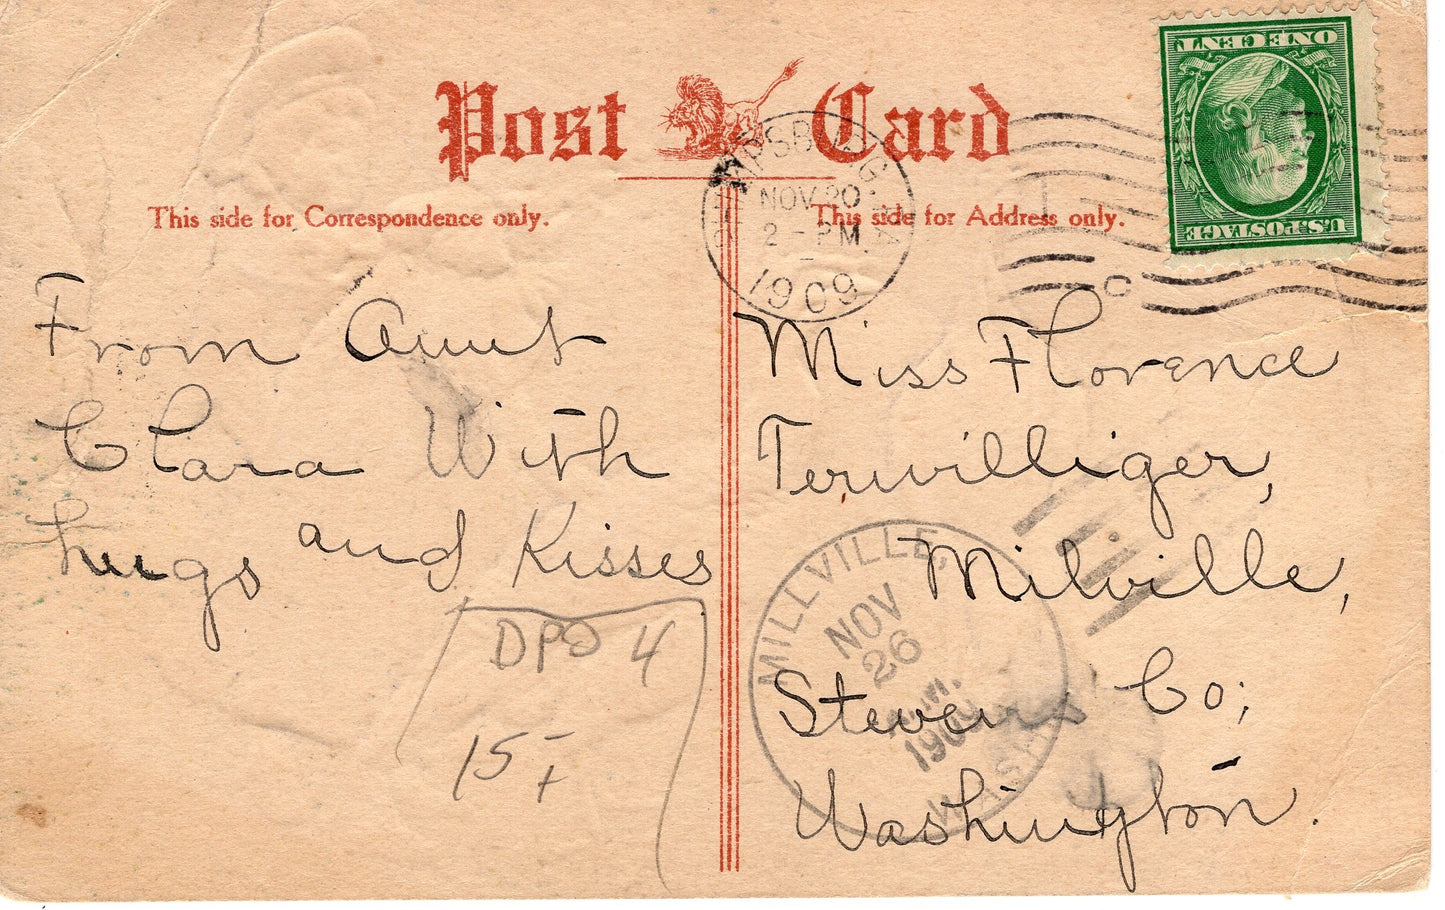 Post Card
This side for Correspondence only.
This side for Address only.
NOV 20
2 - PM
1909
C
ONE CENT
U.S. POSTAGE
From Aunt
Clara With
hugs and Kisses
DPO 4
15
Miss Florence
Terwilliger,
Milville,
Stevens Co;
Washington.
MILLVILLE,
NOV
26
WASH.